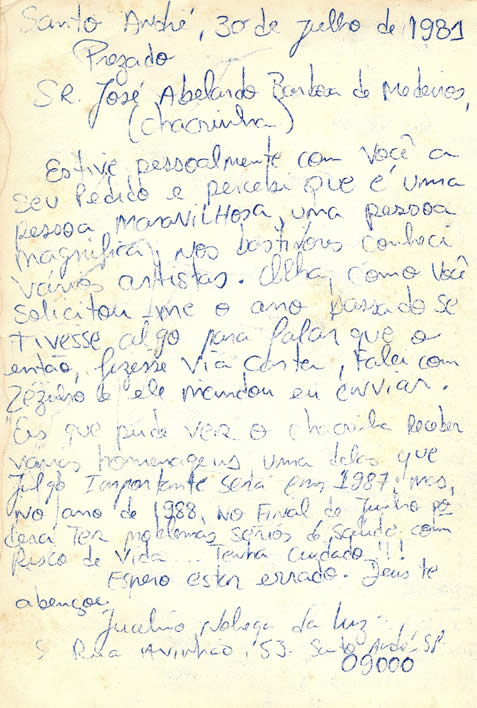 Santo André, 30 de julho de 1981
Prezado
SR. José Abelardo Barbosa de Medeiros,
(chacrinha)
Estive pessoalmente com você a
seu pedido e percebi que é uma
pessoa MARAVILHOSA, uma pessoa
magnífica, nos bastidores conheci
vários artistas. Olha, como você
solicitou-me o ano passado se
tivesse algo para falar que o
então, fizesse via carta, falei com
Zézinho e ele mandou eu enviar.
"Eis que pude ver o chacrinha Receber
várias homenagens, uma delas que
julgo Importante será em 1987, mas,
no ano de 1988, no Final de Junho po
derá Ter problemas sérios de saúde, com
Risco de Vida... Tenha Cuidado!!!
Espero estar errado. Deus te
abençoe.
Jucelino Nobrega da Luz
Rua Avinhão, 53. Santo André-SP.
09000